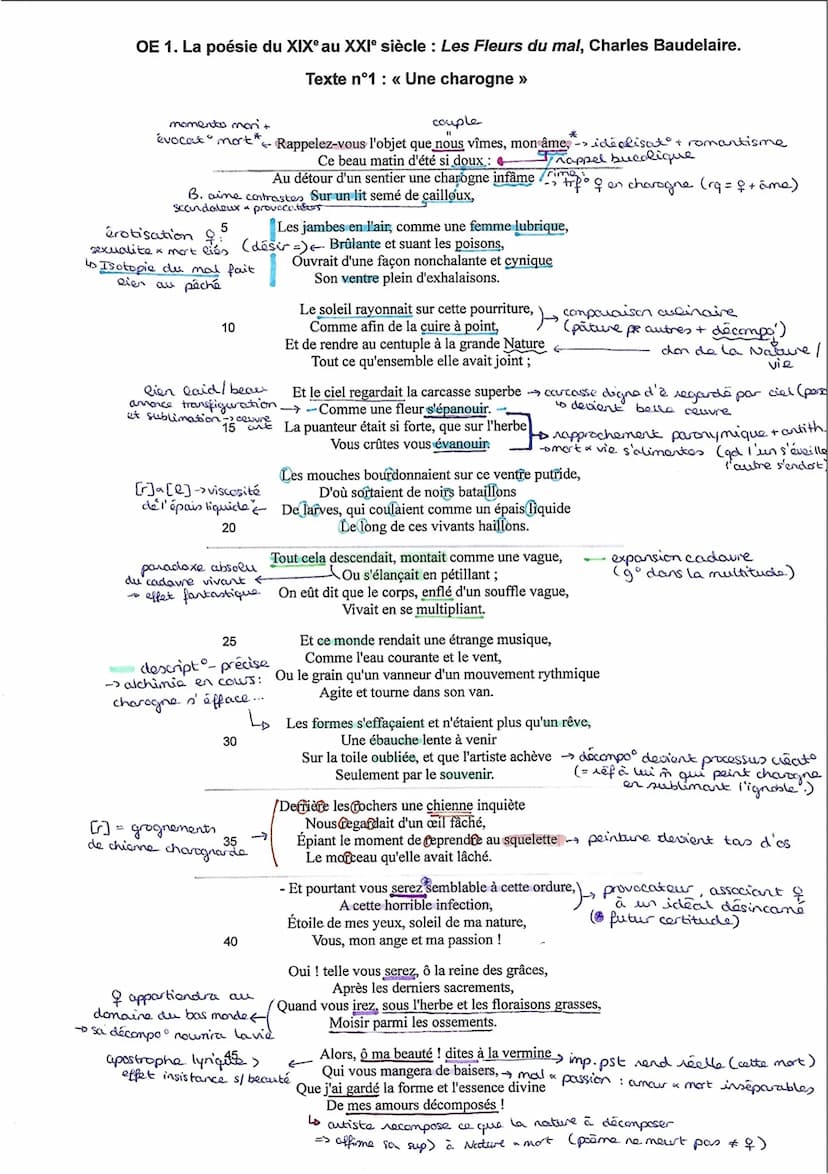 OE 1. La poésie du XIXe au XXIe siècle : Les Fleurs du mal, Charles Baudelaire.
Texte n°1 : « Une charogne »
momento mori +
évocat° mort* ←
couple
Rappelez-vous l'objet que nous vîmes, mon âme,* -> idéalisat° + romantisme
Ce beau matin d'été si doux : rappel bucolique
Au détour d'un sentier une charogne infâme rime -> trf° ♀ en charogne (rq = ♀ + âme)
B. aime contrastes
scandaleux + provocateurs
Sur un lit semé de cailloux,
érotisation ♀ :
sexualité × mort liés
↳ Isotopie du mal fait
lien au péché
5
Les jambes en l'air, comme une femme lubrique,
(désir =) ← Brûlante et suant les poisons,
Ouvrait d'une façon nonchalante et cynique
Son ventre plein d'exhalaisons.
Le soleil rayonnait sur cette pourriture, -> comparaison culinaire
10 Comme afin de la cuire à point, (pâture pr autres + décompo°)
Et de rendre au centuple à la grande Nature ← don de la Nature /
vie
Tout ce qu'ensemble elle avait joint ;
lien laid/beau
annonce transfiguration ->
et sublimation -> œuvre
art
Et le ciel regardait la carcasse superbe -> carcasse digne d'ê regardé par ciel (pers
↳ devient belle œuvre
Comme une fleur s'épanouir.
15 La puanteur était si forte, que sur l'herbe -> rapprochement paronymique + antith.
Vous crûtes vous évanouir. -> mort × vie s'alimentes (qd l'un s'éveille
l'autre s'endort)
[r] × [l] -> viscosité
de l'"épais liquide" ←
Les mouches bourdonnaient sur ce ventre putride,
D'où sortaient de noirs bataillons
De larves, qui coulaient comme un épais liquide
20 Le long de ces vivants haillons.
paradoxe absolu
du cadavre vivant ←
-> effet fantastique
Tout cela descendait, montait comme une vague, — expansion cadavre
(g° dans la multitude)
Ou s'élançait en pétillant ;
On eût dit que le corps, enflé d'un souffle vague,
Vivait en se multipliant.
25 Et ce monde rendait une étrange musique,
descript° précise
-> alchimie en cours :
charogne s'efface...
Comme l'eau courante et le vent,
Ou le grain qu'un vanneur d'un mouvement rythmique
Agite et tourne dans son van.
Les formes s'effaçaient et n'étaient plus qu'un rêve,
30 Une ébauche lente à venir
Sur la toile oubliée, et que l'artiste achève -> décompo° devient processus créat°
Seulement par le souvenir. (= réf à lui m̂ qui peint charogne
en sublimant l'ignoble.)
[r] = grognements
de chienne charognarde ->
Derrière les rochers une chienne inquiète
Nous regardait d'un œil fâché,
35 Épiant le moment de reprendre au squelette -> peinture devient tas d'os
Le morceau qu'elle avait lâché.
- Et pourtant vous serez* semblable à cette ordure, -> provocateur, associant ♀
A cette horrible infection, à un idéal désincarné
Étoile de mes yeux, soleil de ma nature, (* futur certitude)
40 Vous, mon ange et ma passion !
Oui ! telle vous serez, ô la reine des grâces,
♀ appartiendra au
domaine du bas monde ←
-> sa décompo° nourrira la vie
Après les derniers sacrements,
Quand vous irez, sous l'herbe et les floraisons grasses,
Moisir parmi les ossements.
apostrophe lyrique >
effet insistance s/ beauté
45 Alors, ô ma beauté ! dites à la vermine -> imp. pst rend réelle (cette mort)
Qui vous mangera de baisers, -> mal × passion : amour × mort inséparables
Que j'ai gardé la forme et l'essence divine
De mes amours décomposés !
↳ artiste recompose ce que la nature a décomposer
=> affirme sa sup) à Nature × mort (poème ne meurt pas ≠ ♀)